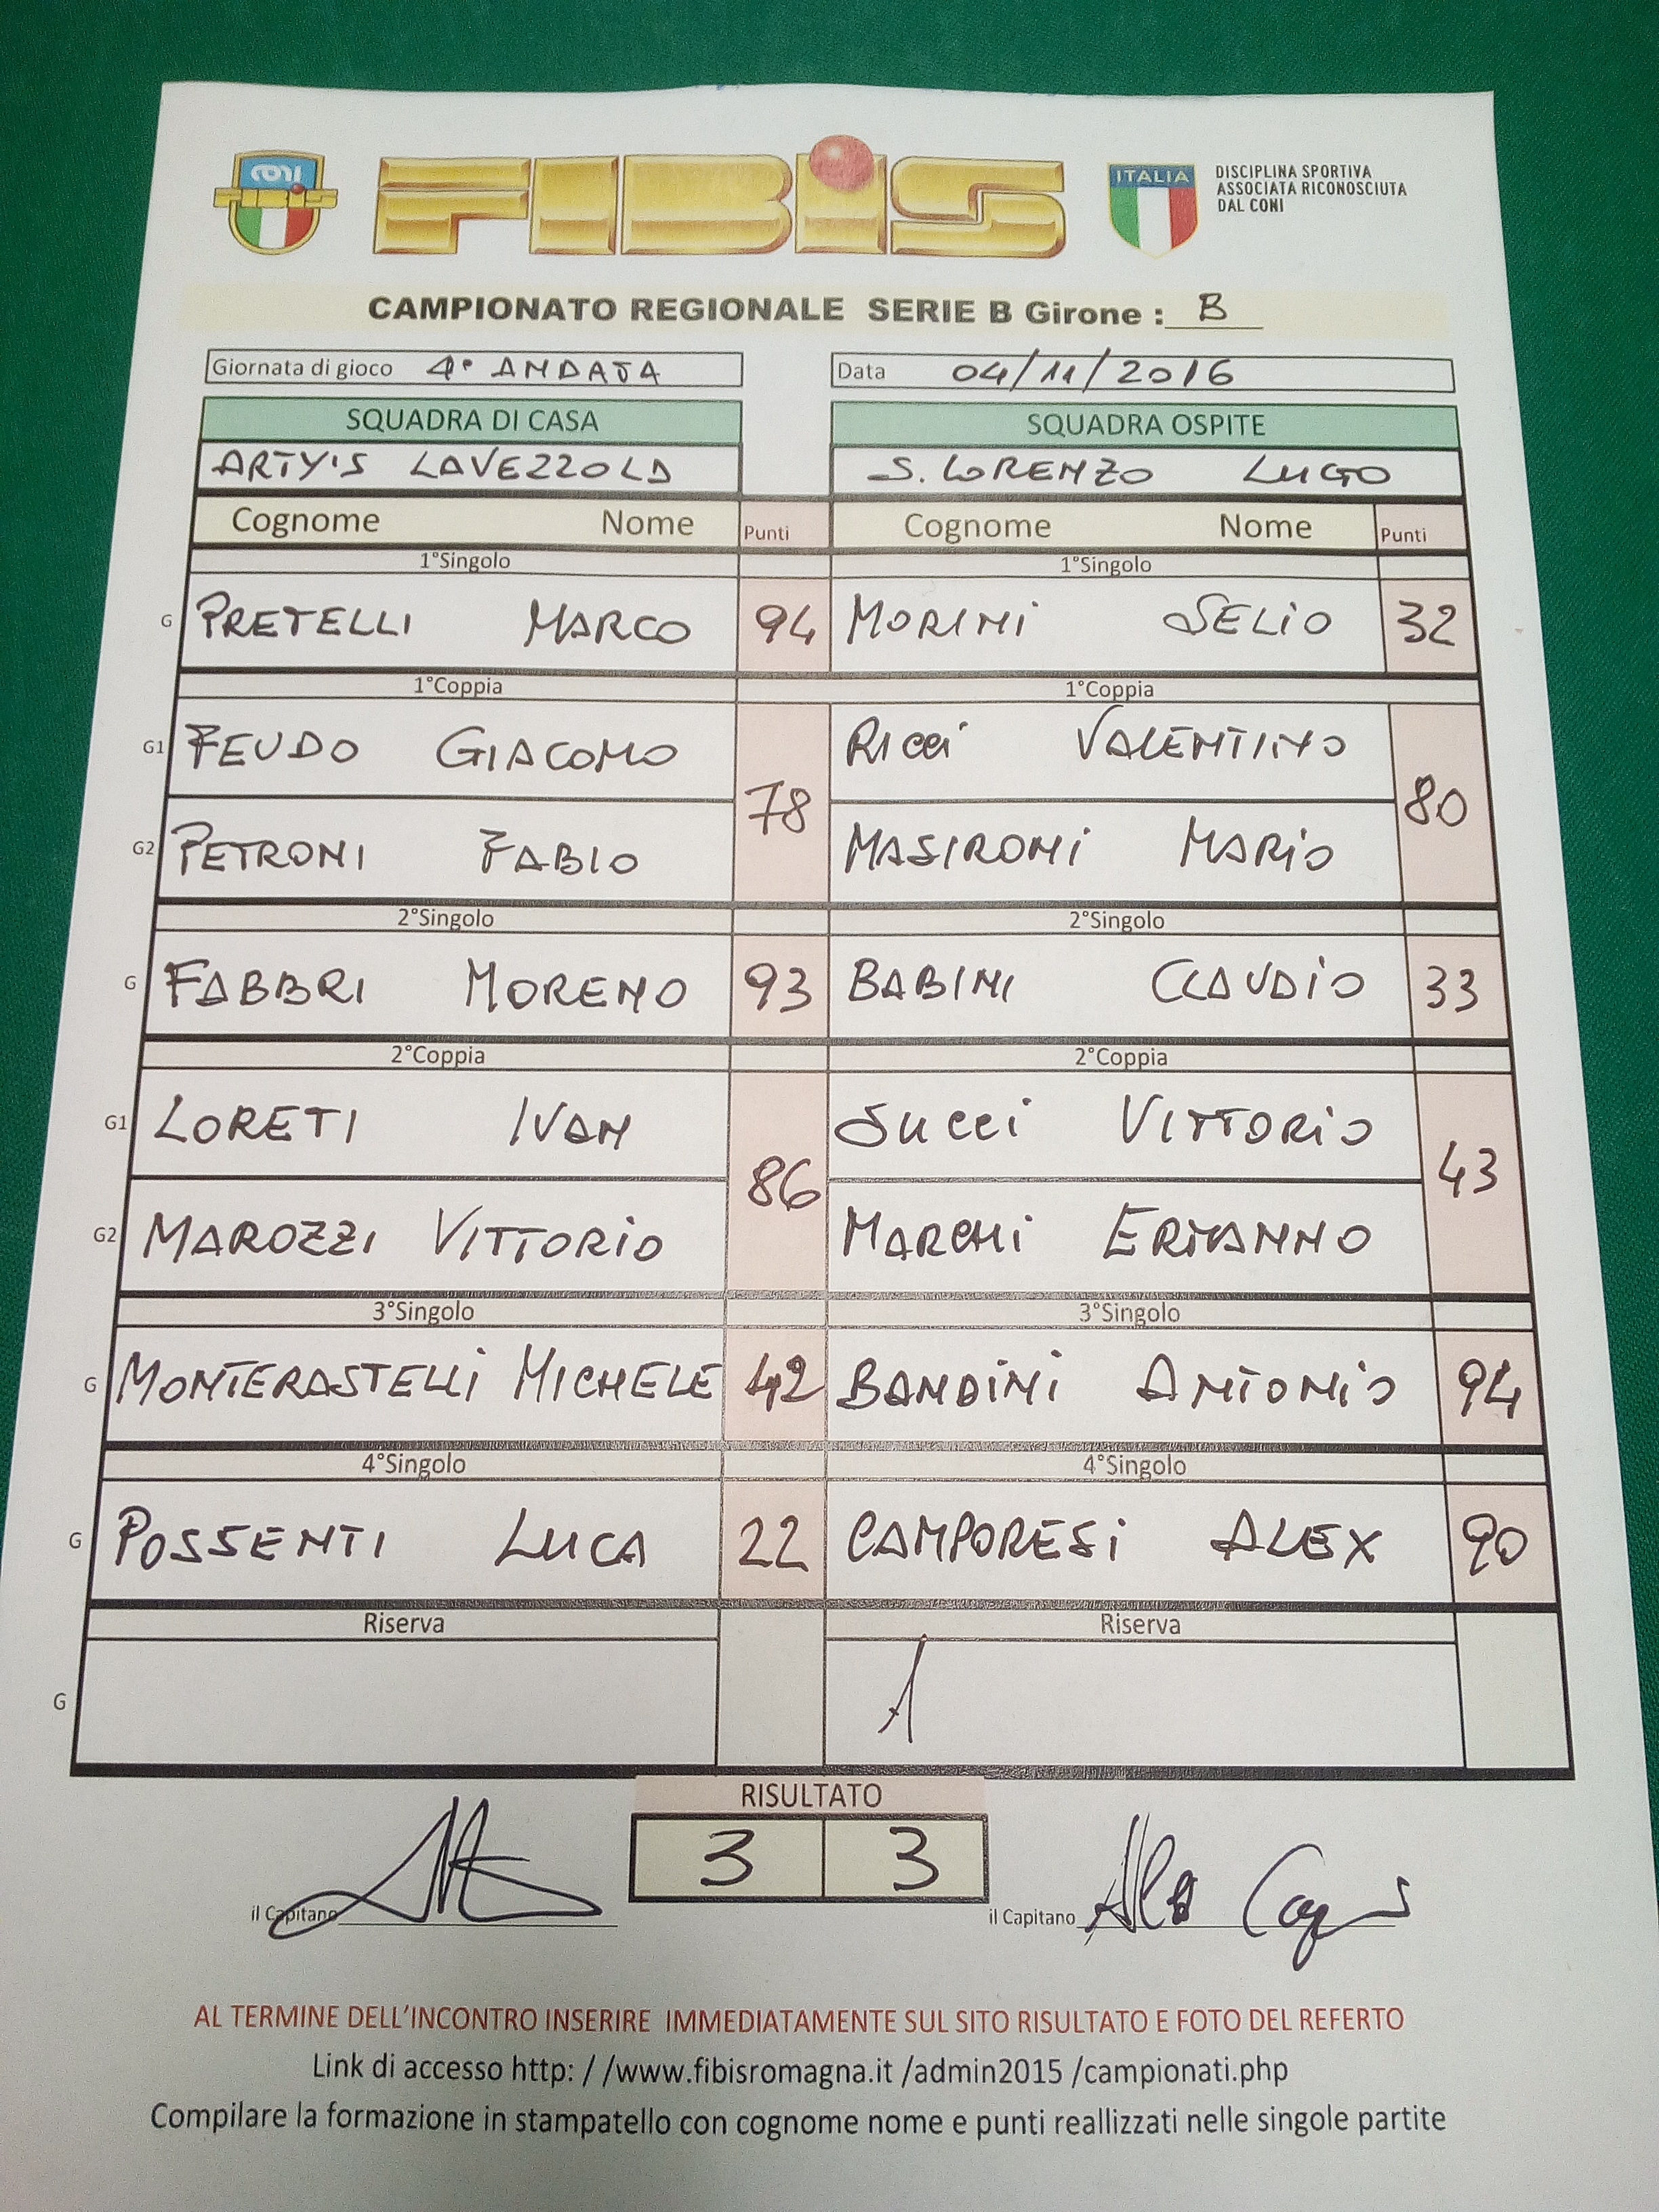 CONI
FIBIS
FIBIS
ITALIA
DISCIPLINA SPORTIVA
ASSOCIATA RICONOSCIUTA
DAL CONI
CAMPIONATO REGIONALE SERIE B Girone : B
Giornata di gioco 4° ANDATA
Data 04/11/2016
SQUADRA DI CASA SQUADRA OSPITE
ARTY'S LAVEZZOLA S. LORENZO LUGO
Cognome Nome Punti Cognome Nome Punti
1°Singolo 1°Singolo
G PRETELLI MARCO 94 MORINI SELIO 32
1°Coppia 1°Coppia
G1 FEUDO GIACOMO 78 RICCI VALENTINO 80
G2 PETRONI FABIO MASIRONI MARIO
2°Singolo 2°Singolo
G FABBRI MORENO 93 BABINI CLAUDIO 33
2°Coppia 2°Coppia
G1 LORETI IVAN 86 SUCCI VITTORIO 43
G2 MAROZZI VITTORIO MARCHI ERMANNO
3°Singolo 3°Singolo
G MONTERASTELLI MICHELE 42 BANDINI ANTONIO 94
4°Singolo 4°Singolo
G POSSENTI LUCA 22 CAMPORESI ALEX 90
Riserva Riserva
G
RISULTATO
3 3
il Capitano il Capitano
AL TERMINE DELL'INCONTRO INSERIRE IMMEDIATAMENTE SUL SITO RISULTATO E FOTO DEL REFERTO
Link di accesso http: / /www.fibisromagna.it /admin2015 /campionati.php
Compilare la formazione in stampatello con cognome nome e punti reallizzati nelle singole partite